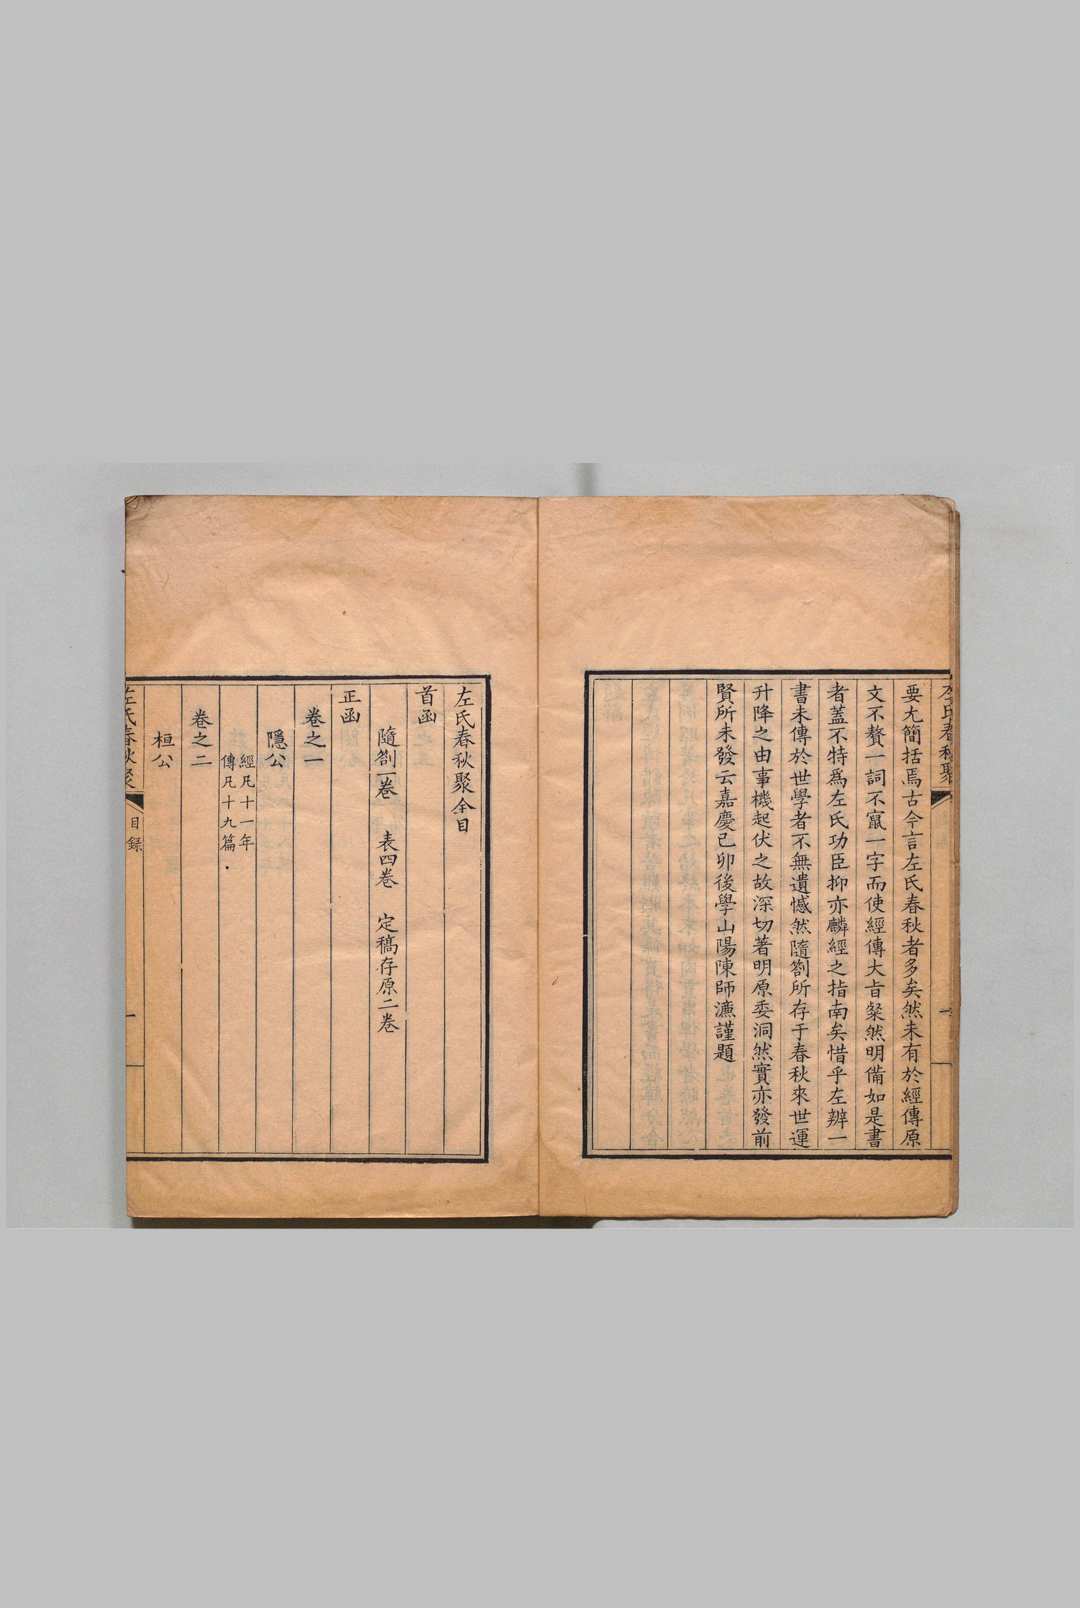 左氏春秋聚
要尤簡括焉古今言左氏春秋者多矣然未有於經傳原
文不贅一詞不竄一字而使經傳大旨粲然明備如是書
者蓋不特為左氏功臣抑亦麟經之指南矣惜乎左辨一
書未傳於世學者不無遺憾然隨劄所存于春秋來世運
升降之由事機起伏之故深切著明原委洞然實亦發前
賢所未發云嘉慶己卯後學山陽陳師濂謹題
左氏春秋聚全目
首函
隨劄一卷 表四卷 定稿存原二卷
正函
卷之一
隱公
經凡十一年
傳凡十九篇
卷之二
桓公
左氏春秋聚
目錄
一